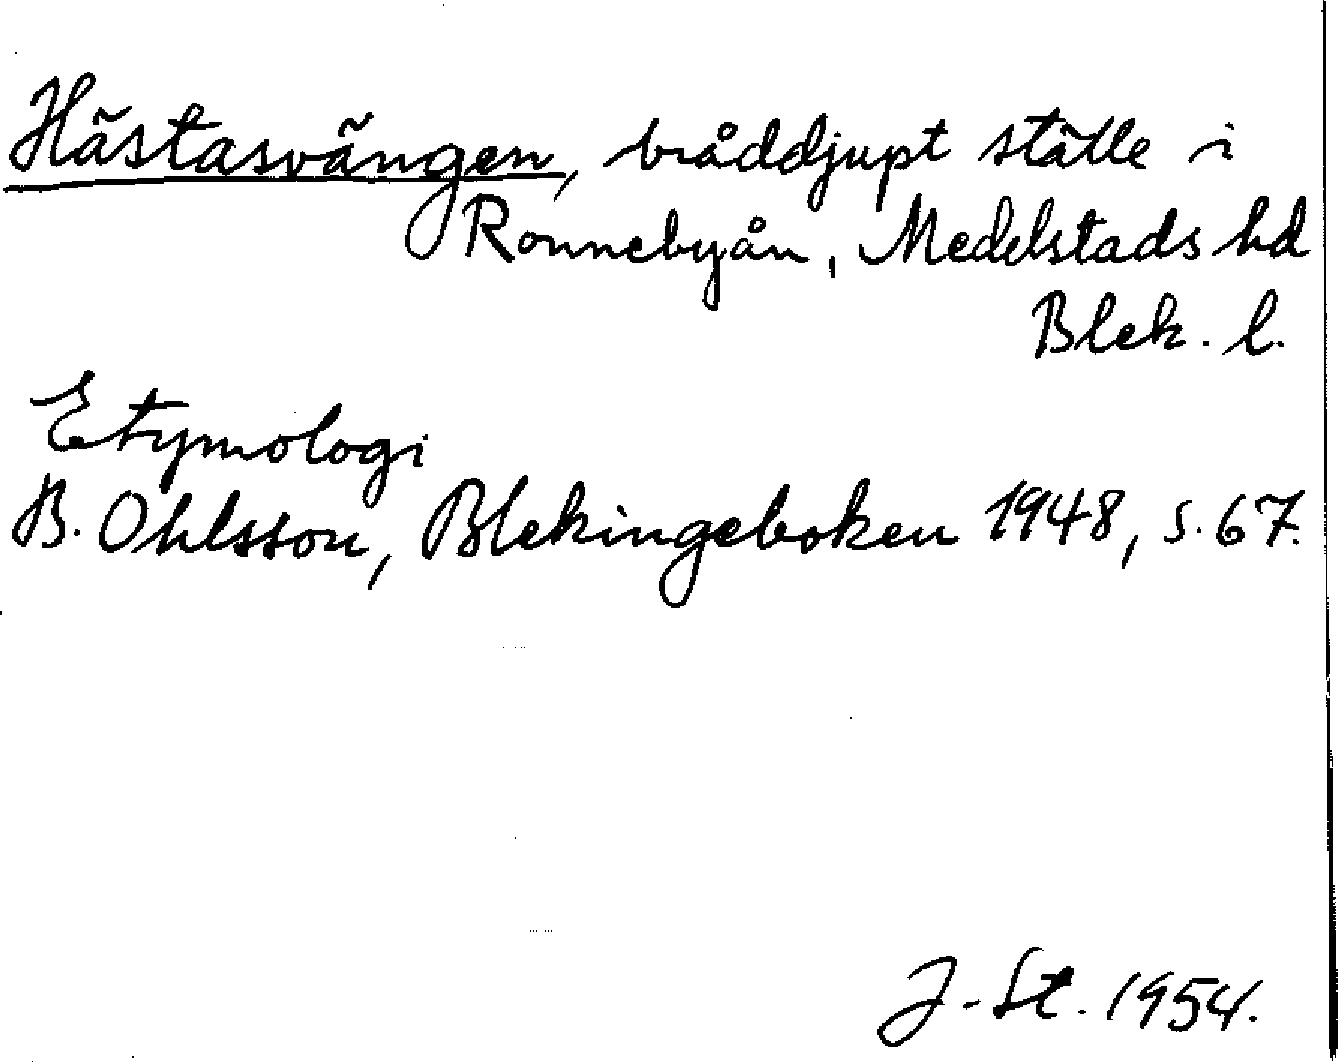 Hästasvängen, bråddjupt ställe i
Ronnebyån, Medelstads hd
Blek. l.
Etymologi
B. Ohlsson, Blekingeboken 1948, s. 67.
J. St. 1954.